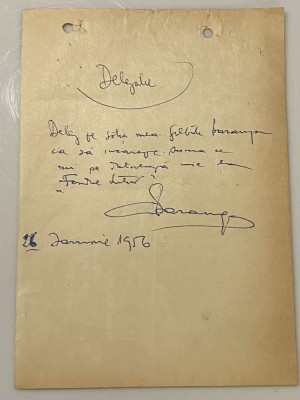 Delegație
Deleg pe soția mea Baranga
ca să încaseze suma ce
mi se mie la
"Fondul Literar"
Baranga
26 Ianuarie 1956